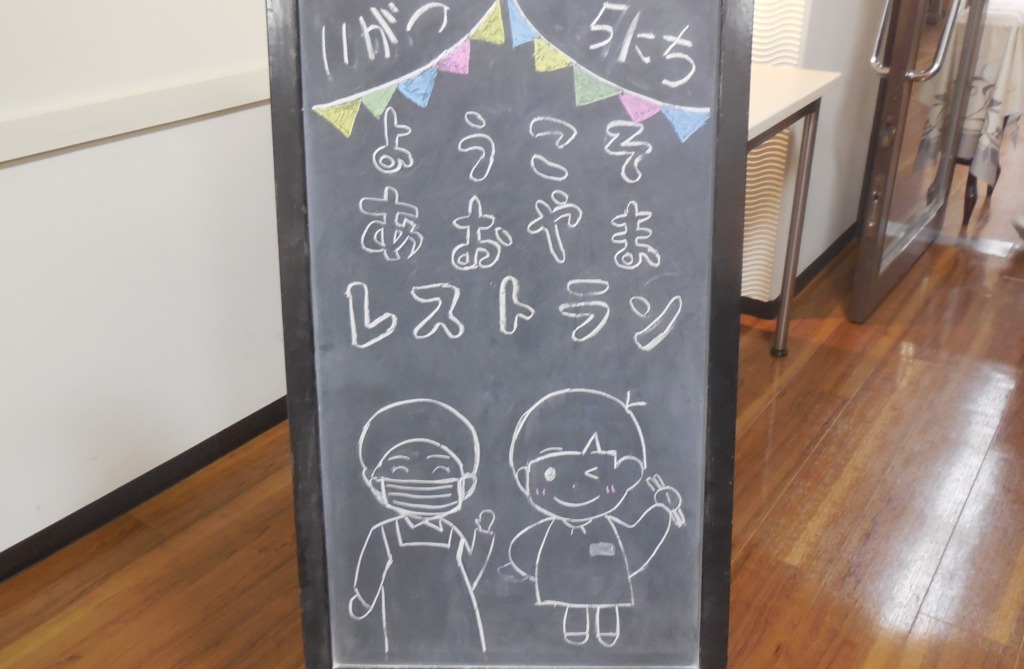 11がつ 5にち
ようこそ
あおやま
レストラン